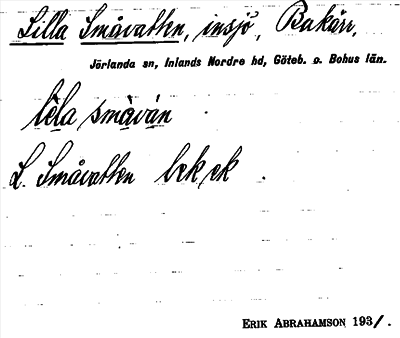 Lilla Småvatten, insjö, Bakärr,
Jörlanda sn, Inlands Nordre hd, Göteb. o. Bohus län.
lèla småván
L. Småvatten bek, ek
ERIK ABRAHAMSON 193/.